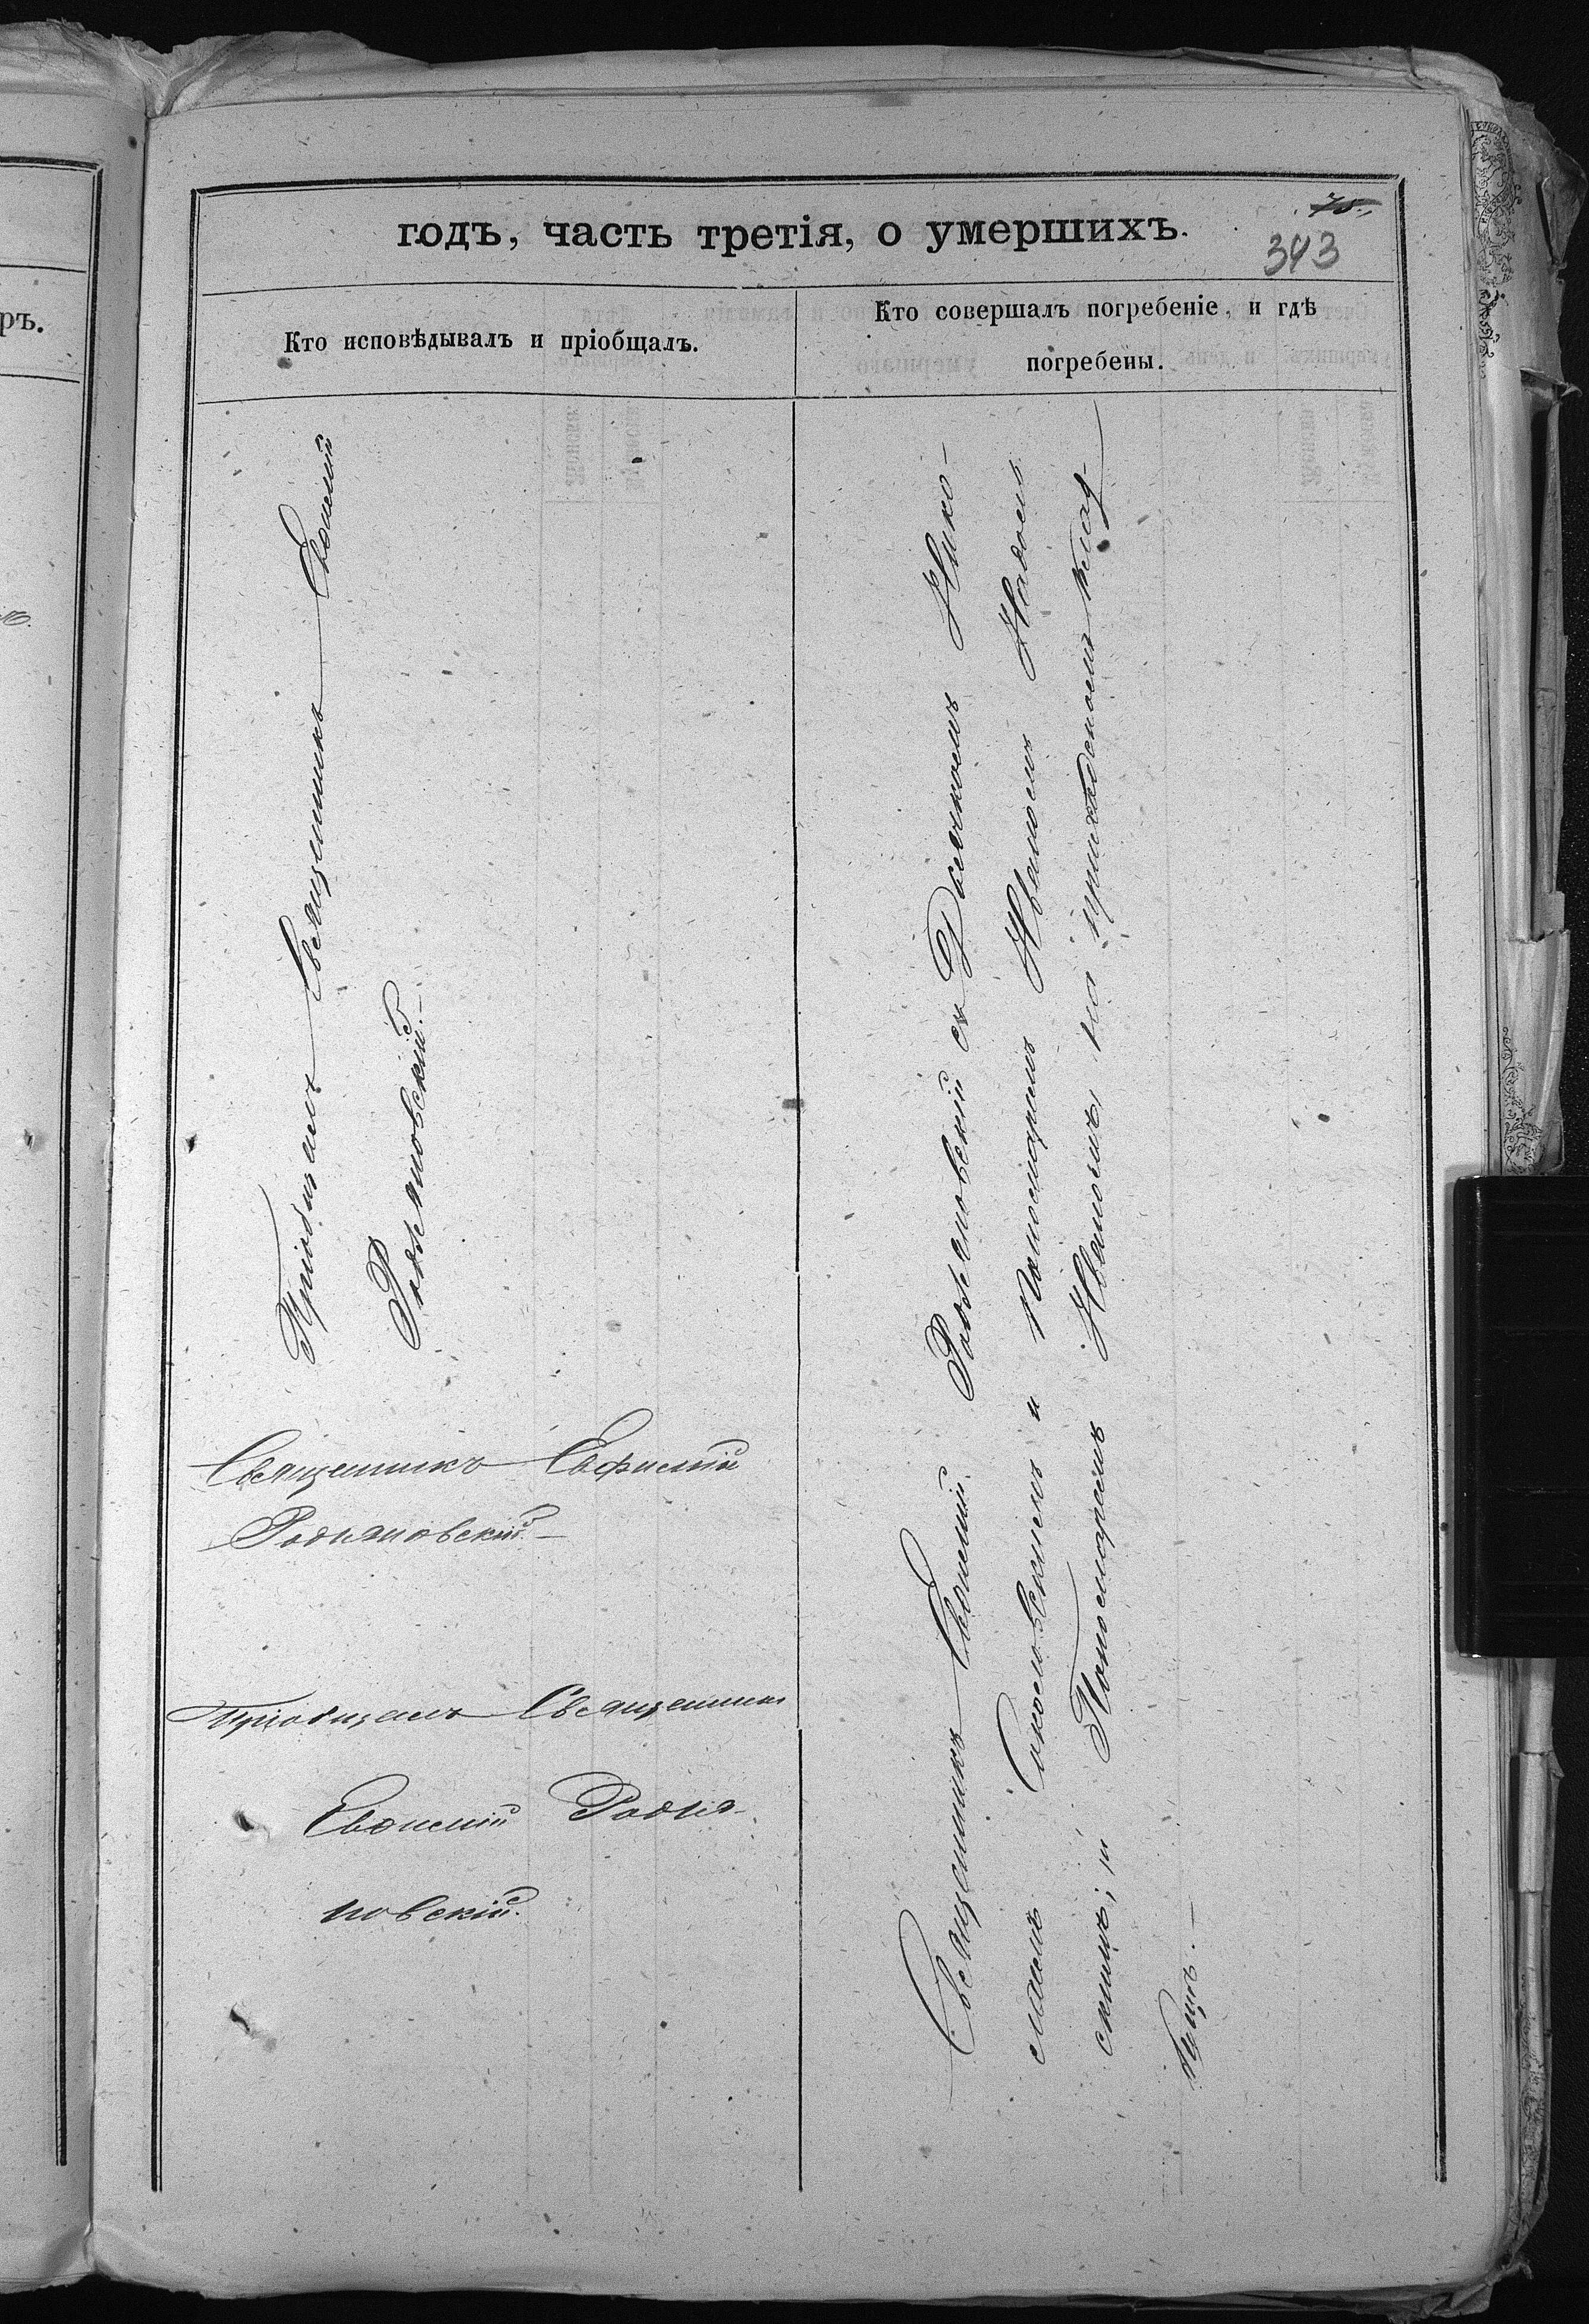 75.
годъ, часть третія, о умершихъ.
343
Кто исповѣдывалъ и пріобщалъ.
Кто совершалъ погребеніе, и гдѣ
погребены.
ръ.
Пріобщалъ Священникъ Евѳимій
Родьяновскій.
Священникъ Евфимій
Родьяновскій.
Пріобщалъ Священник
Евѳимій Родья-
новскій.
Священникъ Евѳимій Родьяновскій съ Діакономъ Нико-
лаемъ Соколовскимъ и пономаремъ Иваномъ
скимъ; и Пономаремъ Ивановымъ, на приходскомъ клад-
бищѣ.